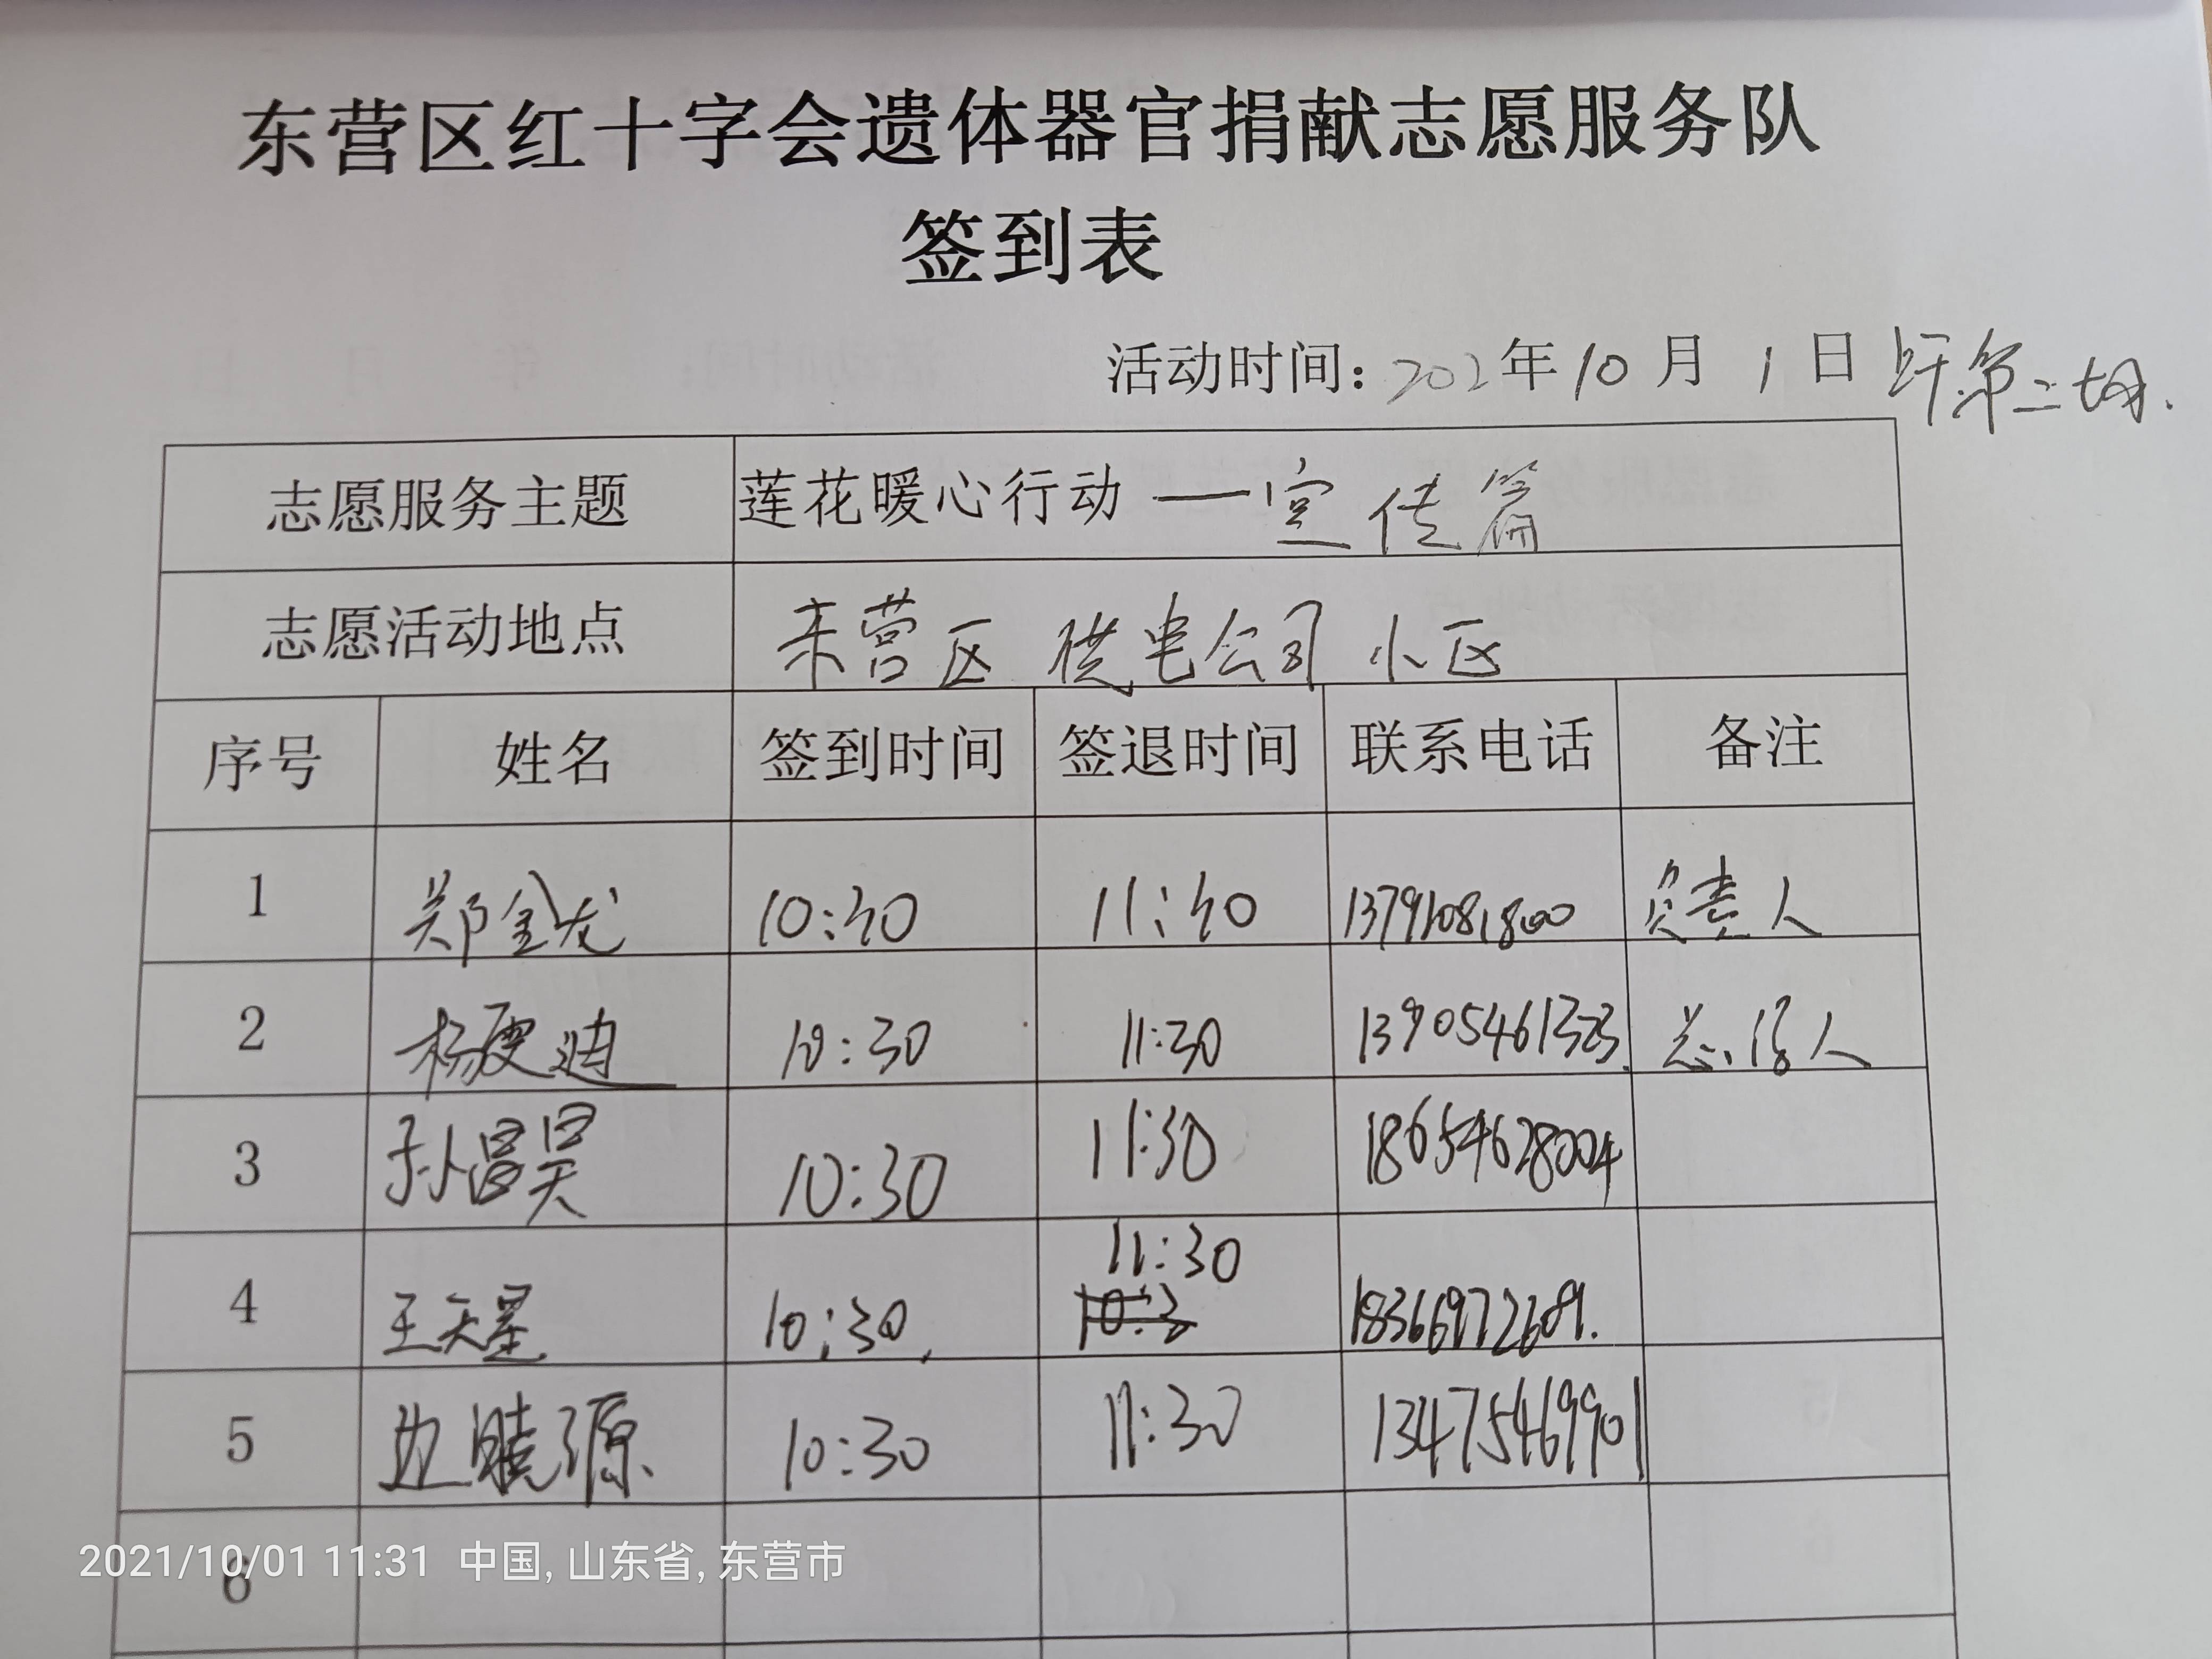 东营区红十字会遗体器官捐献志愿服务队
签到表
活动时间: 202 年 10 月 1 日 上午第二场.
志愿服务主题 莲花暖心行动 — 宣传篇
志愿活动地点 东营区 供电公司 小区
序号 姓名 签到时间 签退时间 联系电话 备注
1 郑金龙 10:40 11:40 13791081800 负责人
2 杨更迪 10:30 11:30 13905461323
3 孙富昊 10:30 11:30 18654628004
4 王天星 10:30 11:30 10:3
5 边晓源 10:30 11:30 13475469901
6
2021/10/01 11:31 中国, 山东省, 东营市